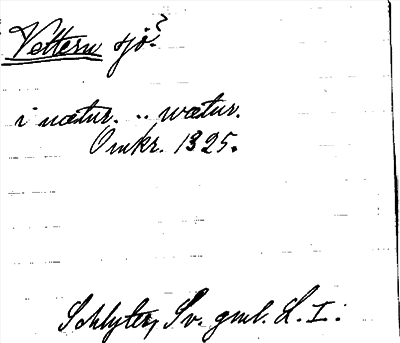 Vettern sjö?
i uætur. .. wætur.
Omkr. 1325.
Schlyter, Sv. gml. L. I.